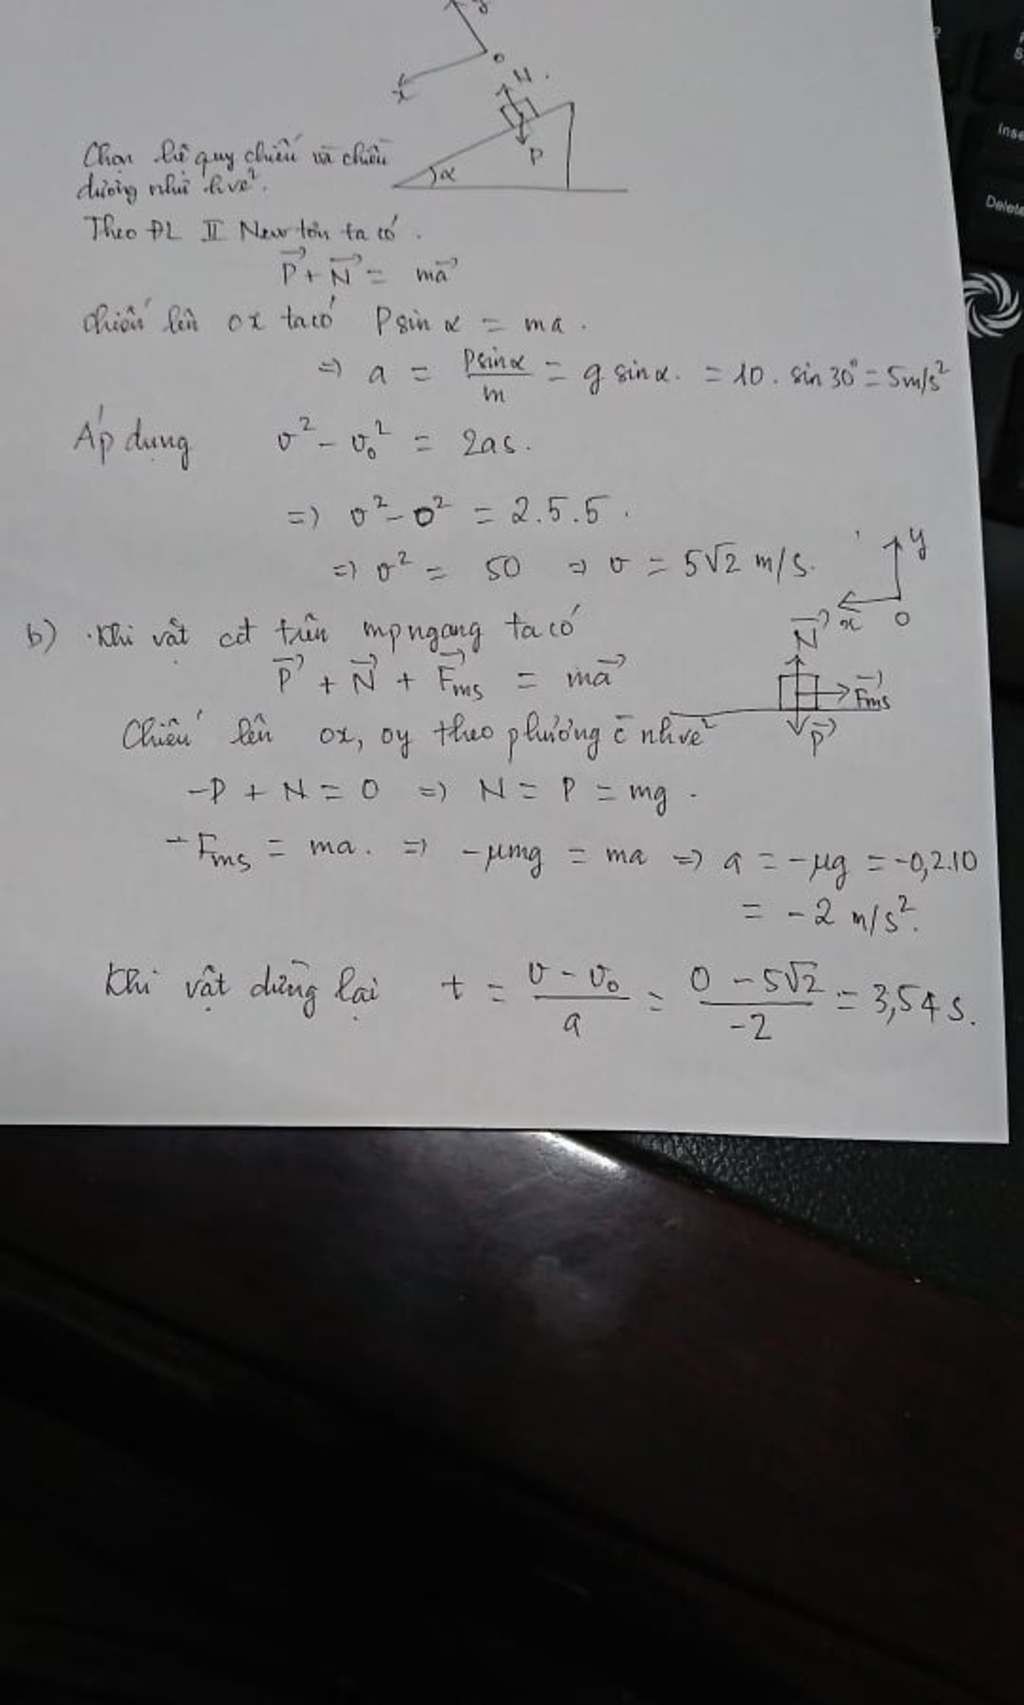 y
O
x
N
P
α
Chọn hệ quy chiếu và chiều
dương như hvẽ.
Theo ĐL II Newton ta có.
P⃗ + N⃗ = ma⃗
Chiếu lên ox ta có Psin α = ma.
=> a = Psinα/m = g sinα. = 10. sin 30° = 5m/s²
Áp dụng v² - v₀² = 2as.
=> v² - 0² = 2.5.5.
=> v² = 50 => v = 5√2 m/s.
y
x
O
b) Khi vật cđ trên mp ngang ta có
P⃗ + N⃗ + F⃗ms = ma⃗
N⃗
F⃗ms
P⃗
Chiếu lên ox, oy theo phương c̄ nhve
-P + N = 0 => N = P = mg.
-Fms = ma. => -μmg = ma => a = -μg = -0,2.10
= -2 m/s².
Khi vật dừng lại t = (v - v₀)/a = (0 - 5√2)/-2 = 3,54 s.
Inse
Delete